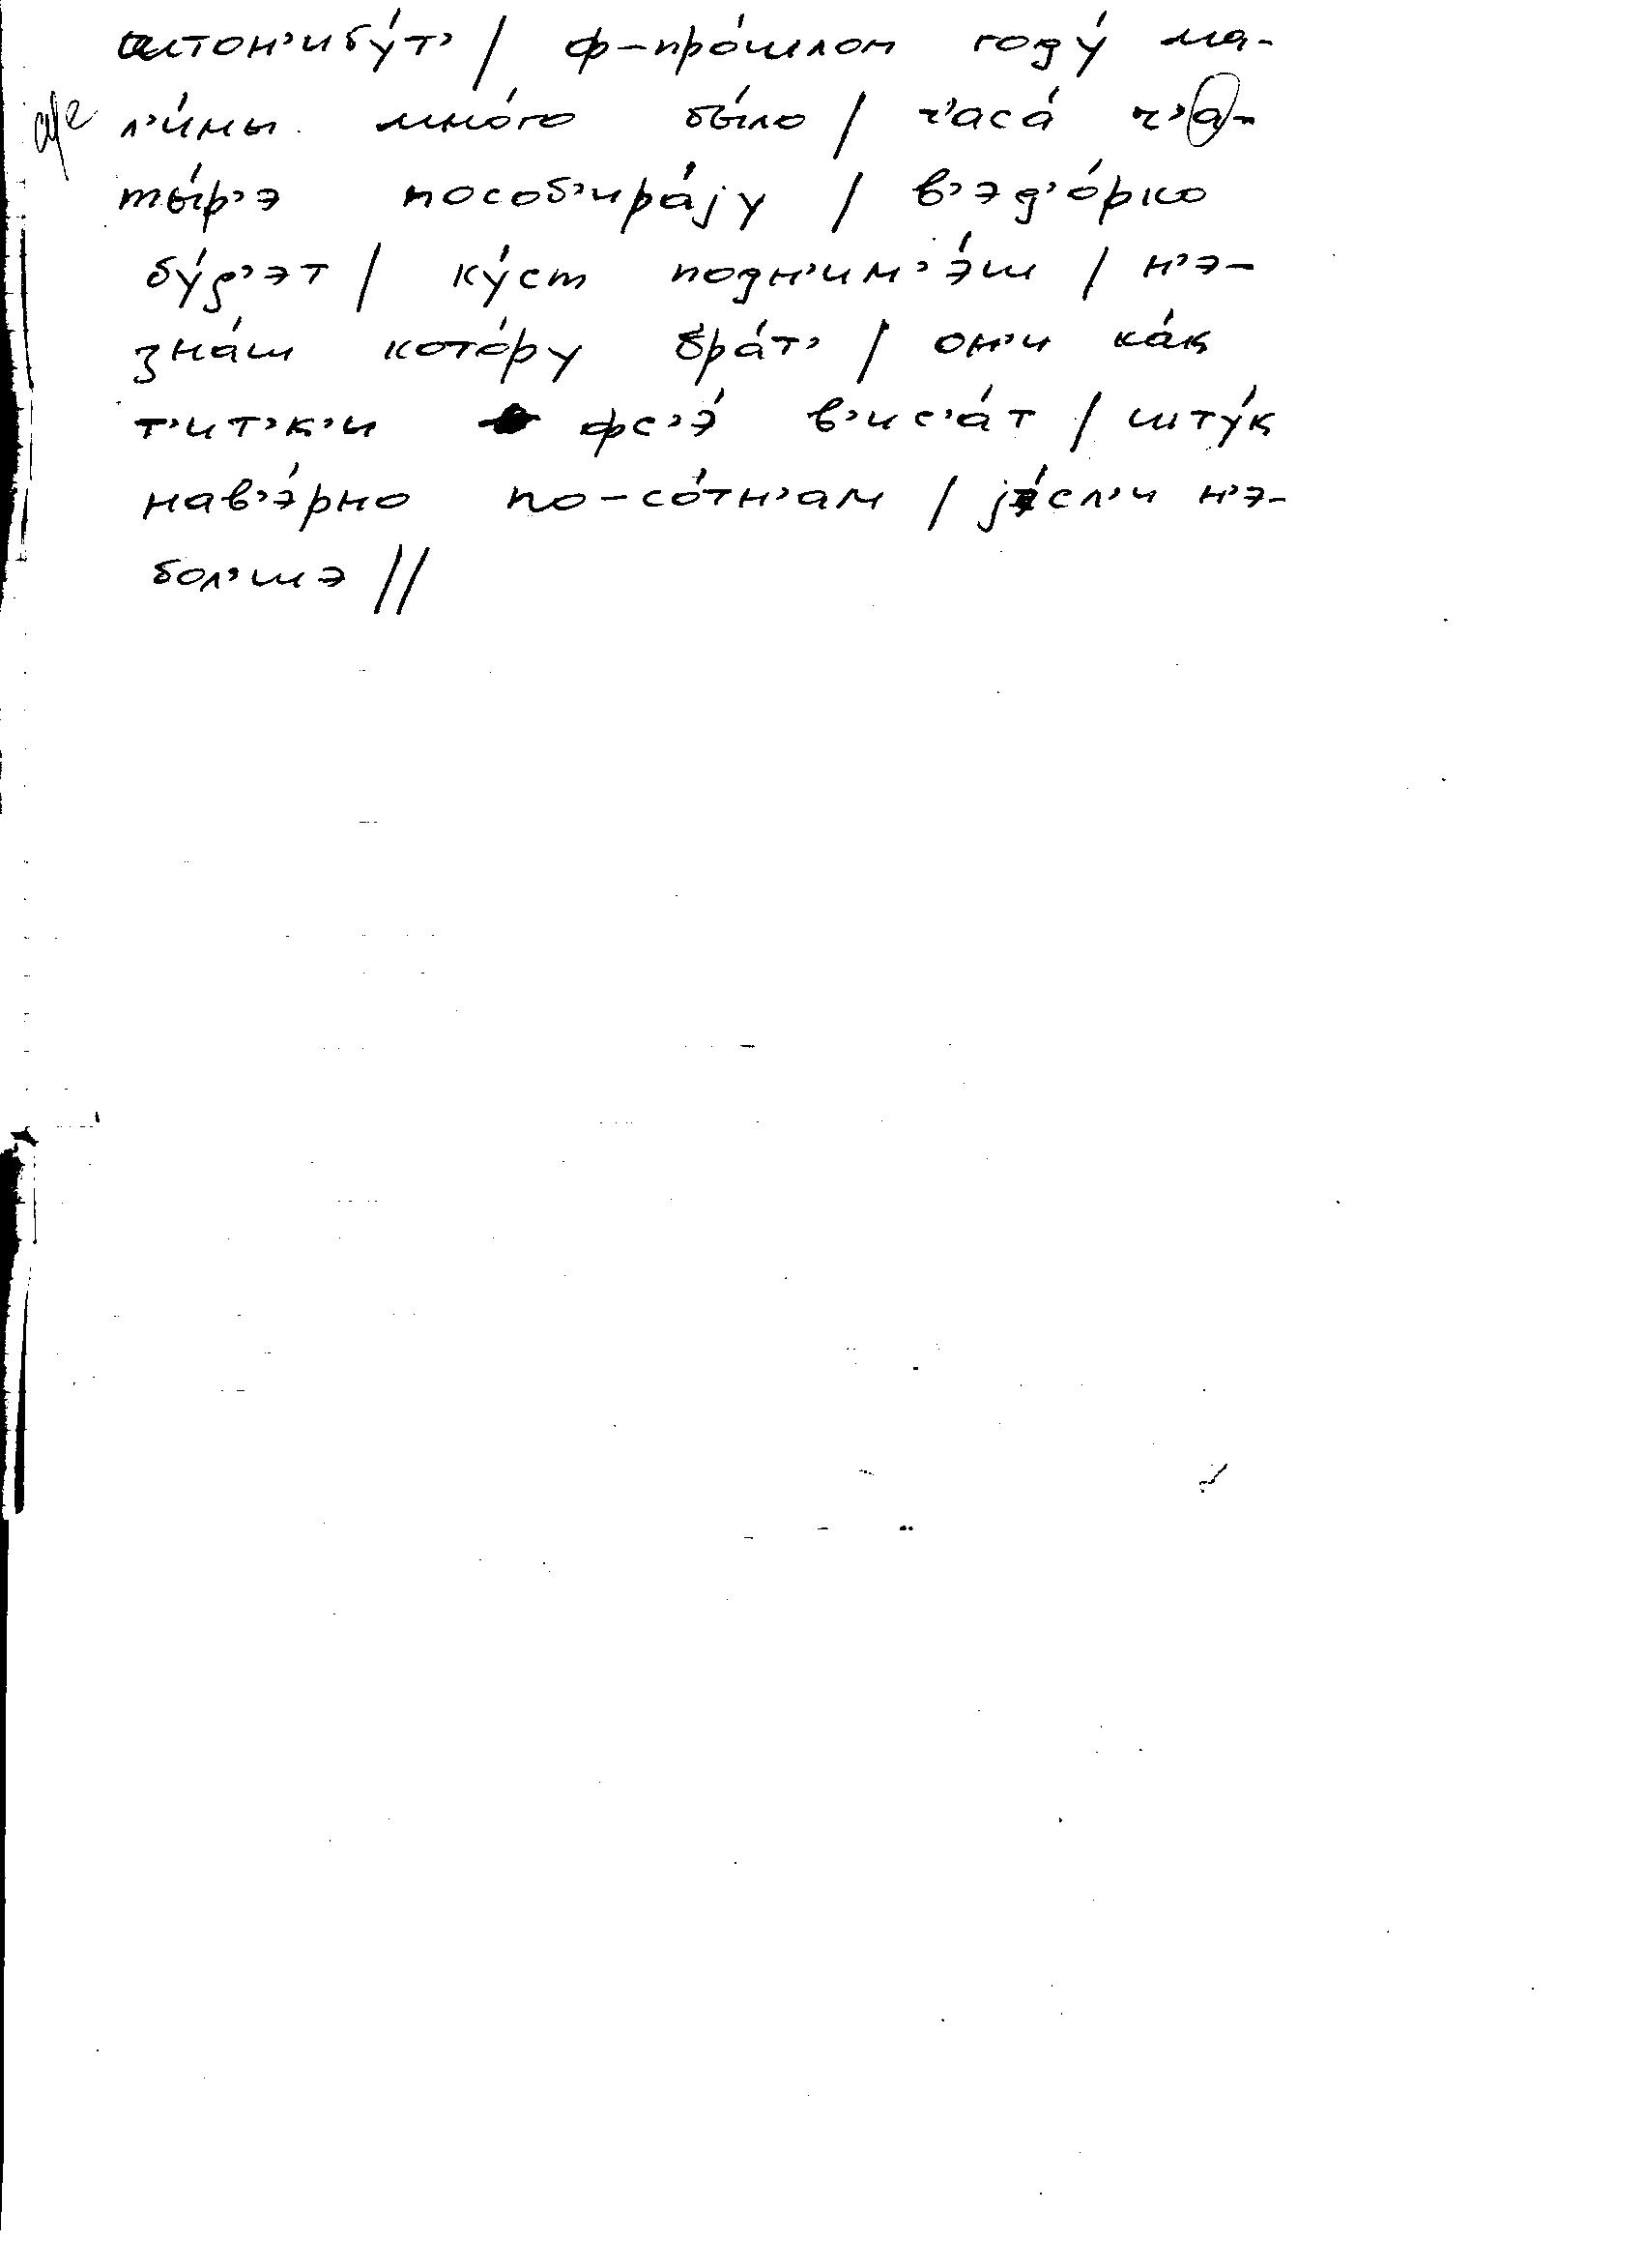 штон’ибу́т’ / ф-про́шлом году́ ма-
л’и́ны мно́го бы́ло / ч’аса́ ч’а-
ты́р’э пособ’ира́jу / в’эд’о́рко
бу́д’эт / ку́ст подн’им’э́ш / н’э-
зна́ш кото́ру бра́т’ / он’и ка́к
т’и́т’к’и фс’э́ в’ис’а́т / шту́к
нав’э́рно по-со́тн’ам / jэ́сл’и н’э-
бол’шэ //